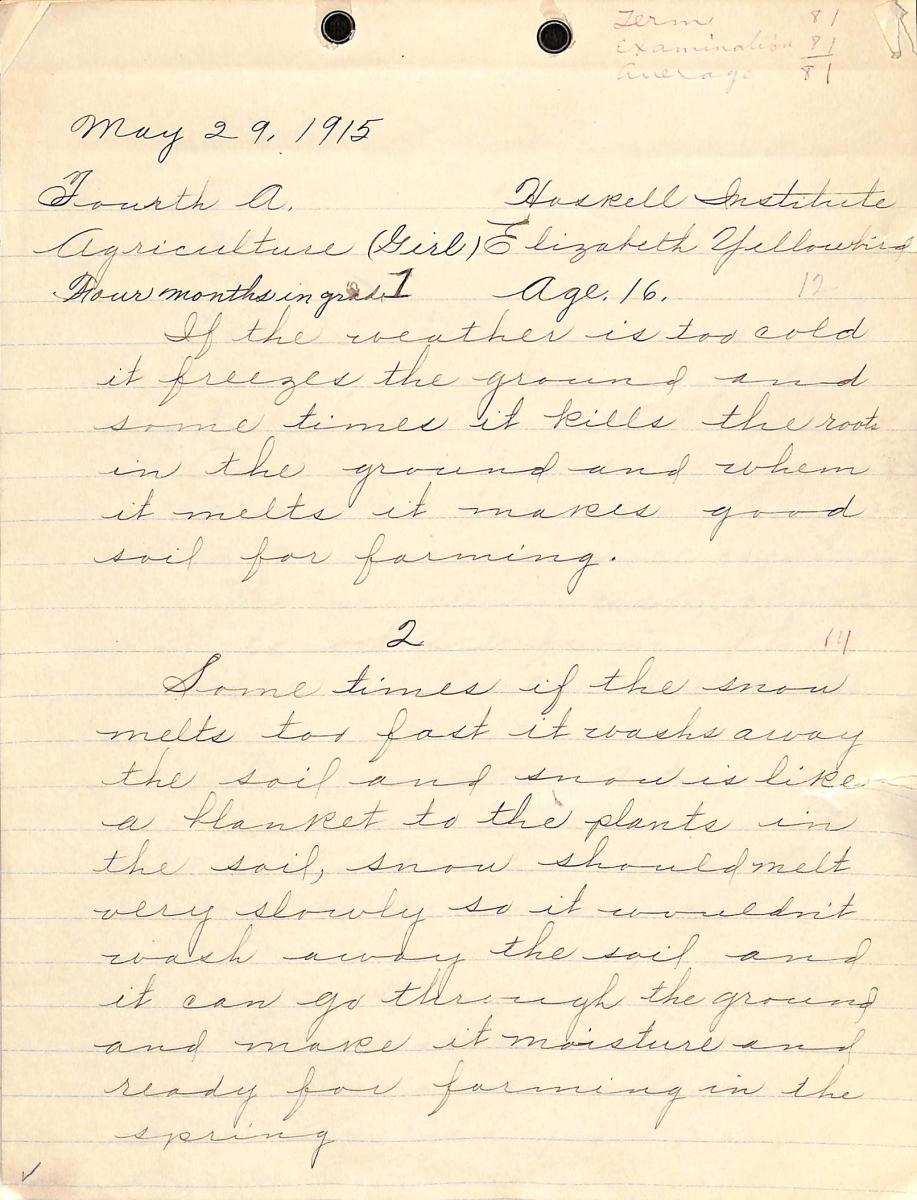 Term 81
Examination 81
Average 81
May 29, 1915
Fourth A. Haskell Institute
Agriculture (Girl) Elizabeth Yellowbird
Four months in grade. Age. 16. 12
1
If the weather is too cold
it freezes the ground and
some times it kills the roots
in the ground and when
it melts it makes good
soil for farming.
2 14
Some times if the snow
melts too fast it washs away
the soil and snow is like
a blanket to the plants in
the soil, snow should melt
very slowly so it wouldn't
wash away the soil and
it can go through the ground
and make it moisture and
ready for farming in the
spring